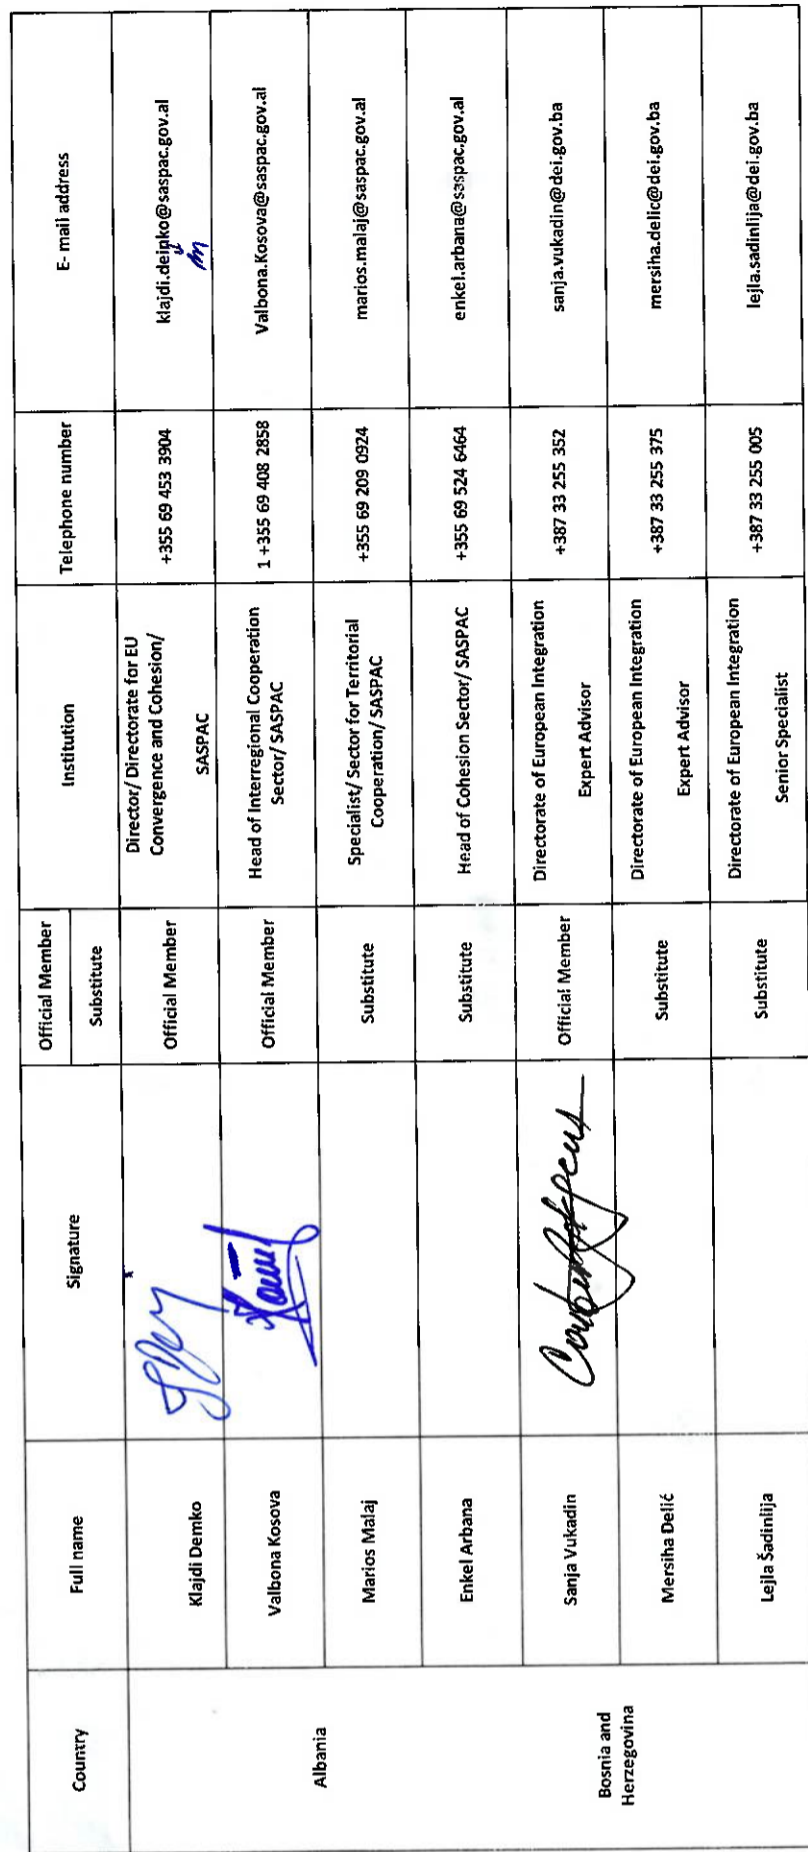 Country
Full name
Signature
Official Member
Substitute
Institution
Telephone number
E- mail address
Albania
Klajdi Demko
Official Member
Director/ Directorate for EU
Convergence and Cohesion/
SASPAC
+355 69 453 3904
klajdi.deinko@saspac.gov.al
m
Valbona Kosova
Official Member
Head of Interregional Cooperation
Sector/ SASPAC
1 +355 69 408 2858
Valbona.Kosova@saspac.gov.al
Marios Malaj
Substitute
Specialist/ Sector for Territorial
Cooperation/ SASPAC
+355 69 209 0924
marios.malaj@saspac.gov.al
Enkel Arbana
Substitute
Head of Cohesion Sector/ SASPAC
+355 69 524 6464
enkel.arbana@saspac.gov.al
Bosnia and
Herzegovina
Sanja Vukadin
Official Member
Directorate of European Integration
Expert Advisor
+387 33 255 352
sanja.vukadin@dei.gov.ba
Mersiha Delić
Substitute
Directorate of European Integration
Expert Advisor
+387 33 255 375
mersiha.delic@dei.gov.ba
Lejla Šadinlija
Substitute
Directorate of European Integration
Senior Specialist
+387 33 255 005
lejla.sadinlija@dei.gov.ba